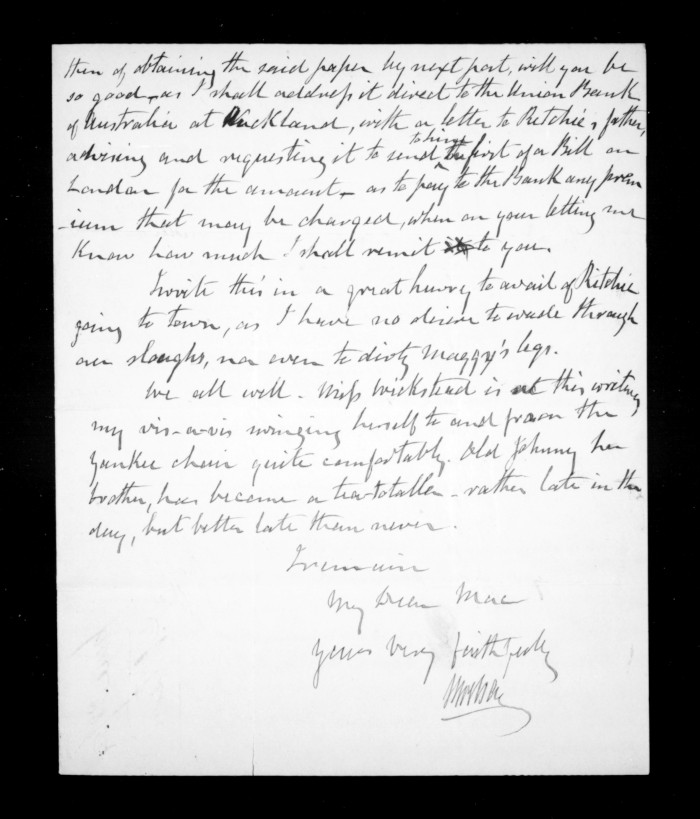 then of obtaining the said paper by next post, will you be
so good, as I shall address it direct to the Union Bank
of Australia at Auckland, with a letter to Ritchie's father,
advising and requesting it to send to him the first of a Bill on
London for the amount - as to pay to the Bank any prem
-ium that may be charged, when on your letting me
know how much I shall remit it to you.
I write this in a great hurry to avail of Ritchie
going to town, as I have no desire to wade through
our sloughs, nor even to dirty Maggy's legs.
We all well - Miss Wickstead is at this writing
my vis-a-vis swinging herself to and fro on the
Yankee chair quite comfortably. Old Johnny her
brother, has become a tea-totaller - rather late in the
day, but better late than never.
I remain
My Dear Mac
yours very faithfully